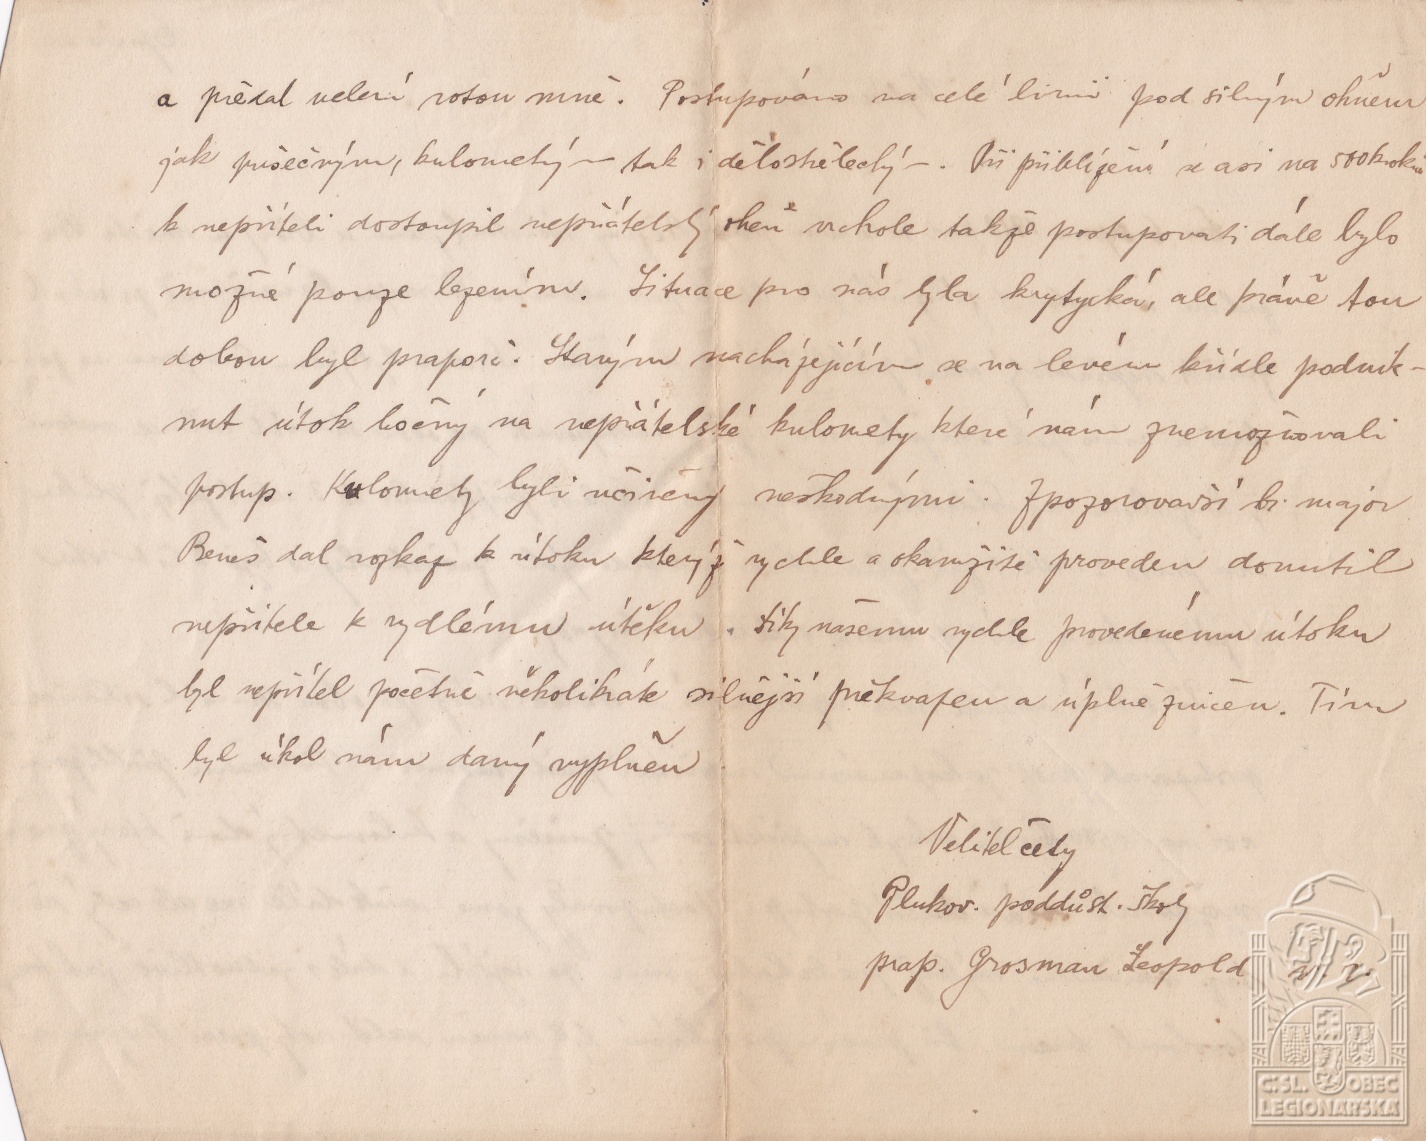 a předal velení rotou mně. Postupováno na celé linii pod silným ohněm
jak pušečným, kulometným tak i dělostřeleckým. Při přiblížení se asi na 500 kroků
k nepříteli dostoupil nepřátelský oheň vrchole takže postupovati dále bylo
možné pouze lezením. Situace pro nás byla krytycká, ale právě tou
dobou byl praporč. Starým nacházejícím se na levém křídle podnik-
nut útok bočný na nepřátelské kulomety které nám znemožňovali
postup. Kulomety byli učiněny neškodnými. Zpozorovavší br. major
Beneš dal rozkaz k útoku kterýž rychle a okamžitě proveden donutil
nepřítele k rydlému útěku. Díky našemu rychle provedenému útoku
byl nepřítel početně několikráte silnější překvapen a úplně zničen. Tím
byl úkol nám daný vyplněn
Velitel čety
Plukov. poddůst. školy
prap. Grosman Leopold v. r.
Č.SL. OBEC
LEGIONÁŘSKÁ